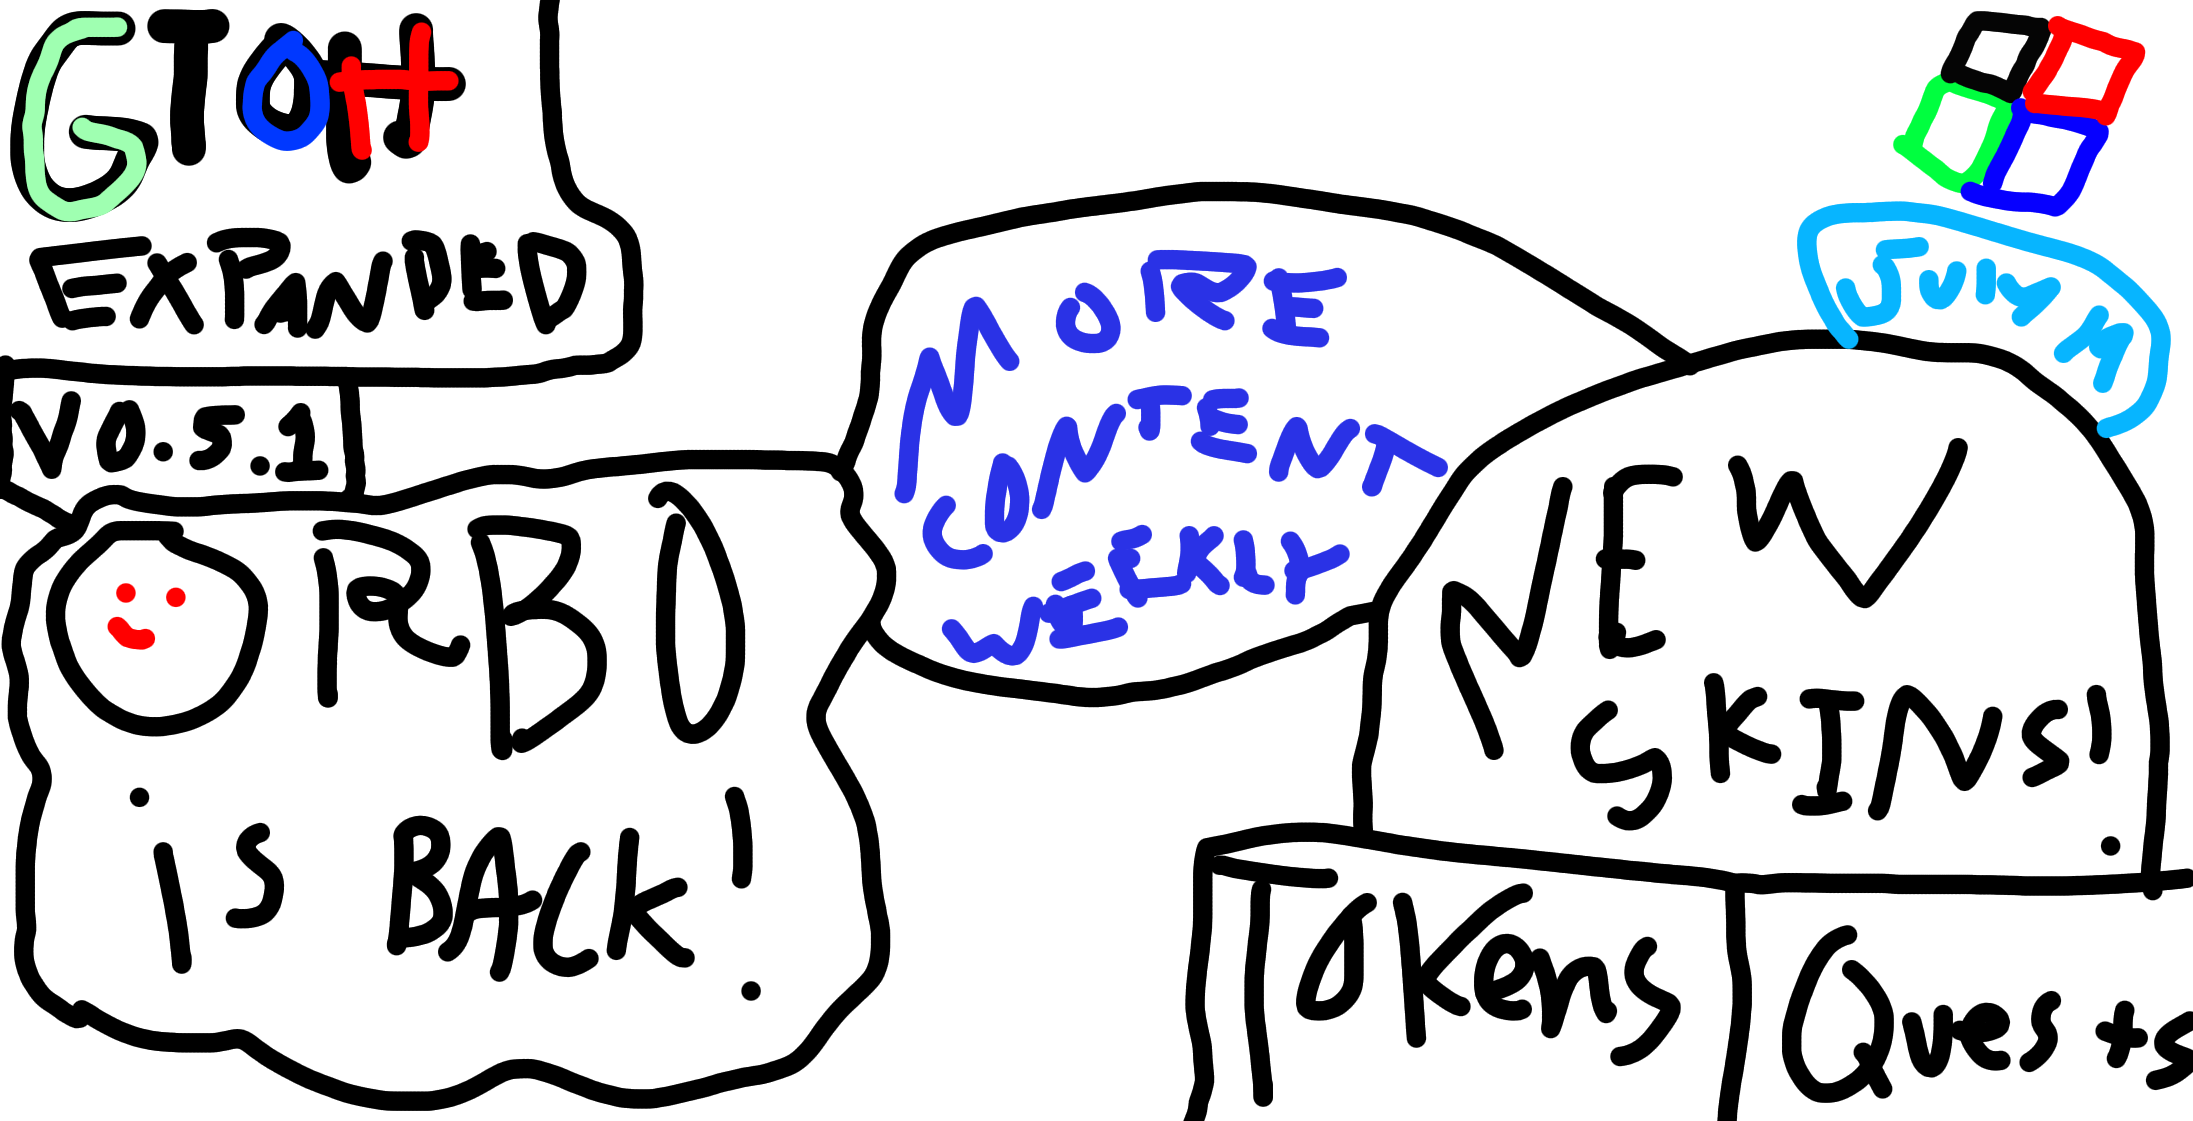 GTOH
EXPANDED
V0.5.1
ORBO
is BACK!
MORE
CONTENT
WEEKLY
NEW
SKINS!
TOKens
Quests